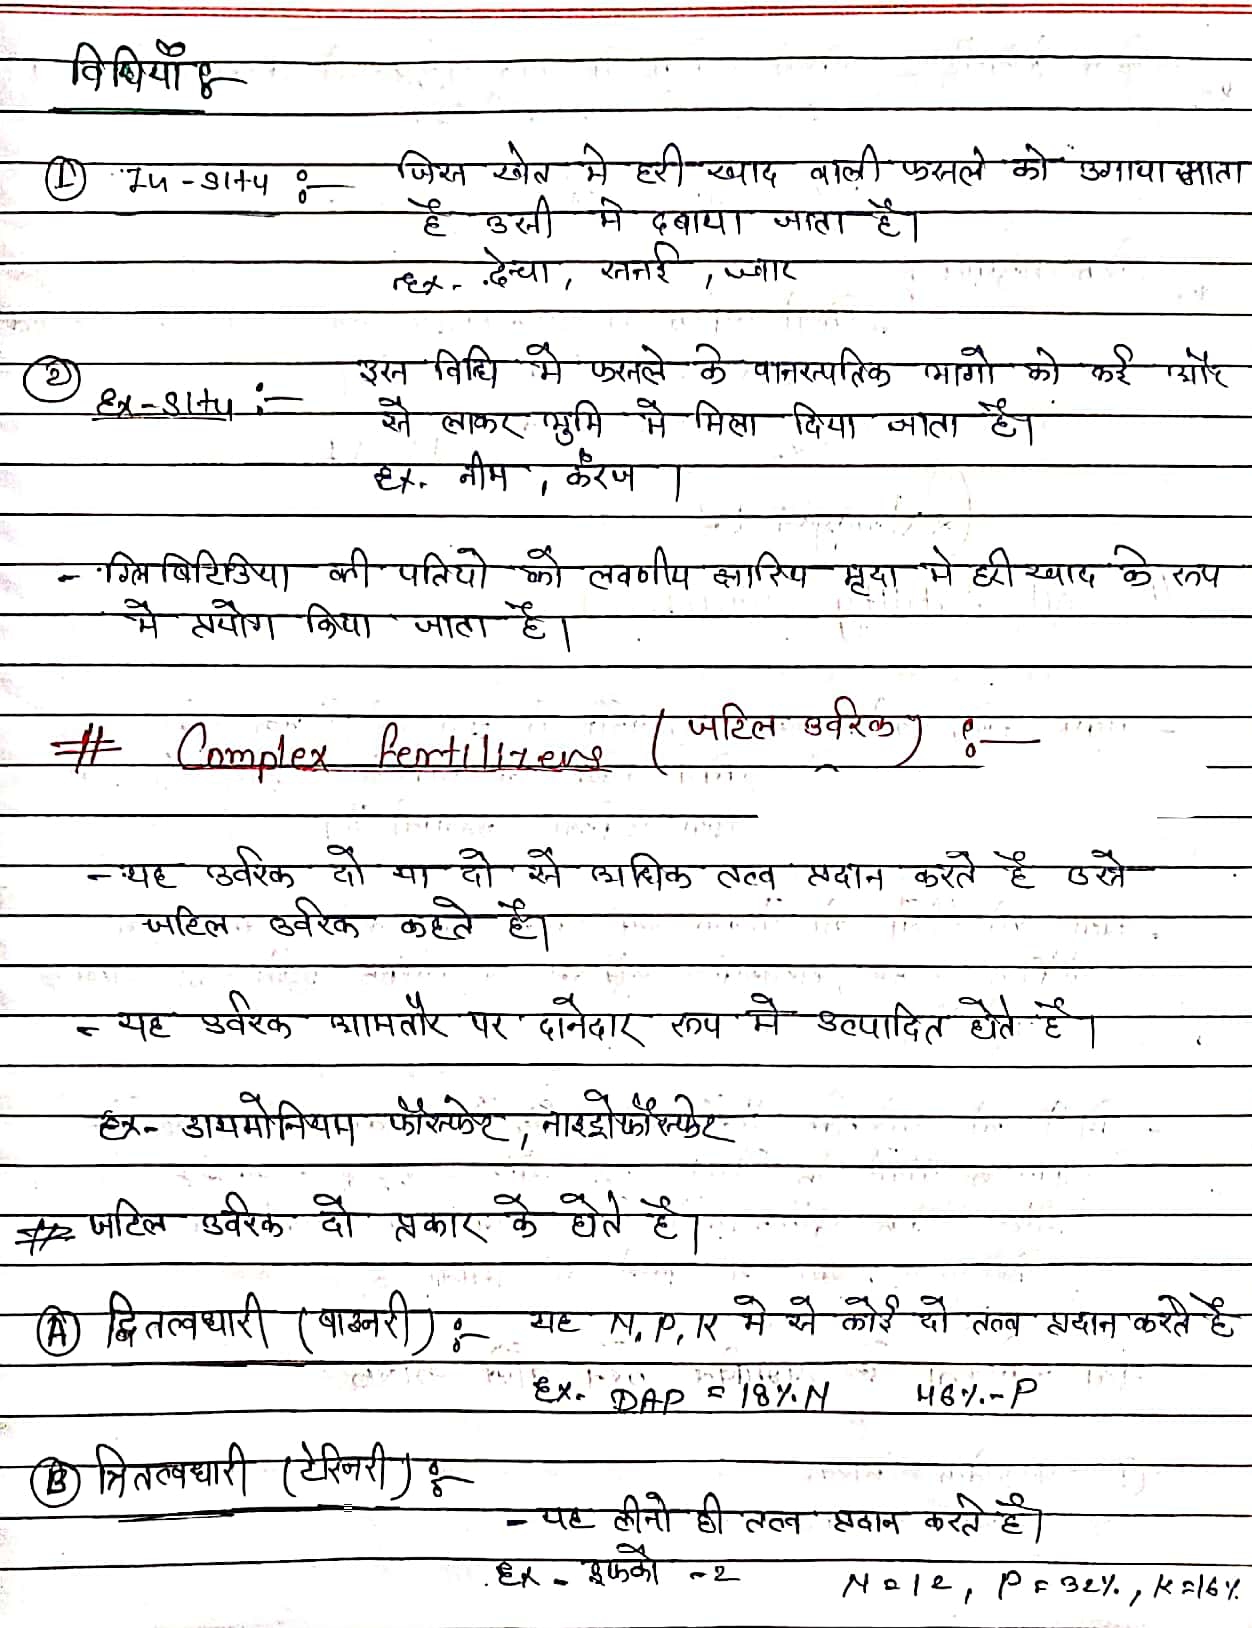 विधियाँ :-
① In-situ :- जिस खेत मे हरी खाद वाली फसले को उगाया जाता
है उसी मे दबाया जाता है।
Ex- ढेन्चा, सनई, ज्वार
② Ex-situ :- इस विधि मे फसले के वानस्पतिक भागो को कई और
से लाकर भुमि मे मिला दिया जाता है।
Ex. नीम, करंज।
- ग्लिबिरिडिया की पतियो को लवणीय क्षारिय मृदा मे हरी खाद के रूप
मे प्रयोग किया जाता है।
# Complex fertilizers (जटिल उर्वरक) :-
- यह उर्वरक दो या दो से अधिक तत्व प्रदान करते है उसे
जटिल उर्वरक कहते है।
- यह उर्वरक आमतौर पर दानेदार रूप मे उत्पादित होते है।
Ex- डायमोनियम फॉस्फेट, नाइट्रोफॉस्फेट
# जटिल उर्वरक दो प्रकार के होते है।
Ⓐ द्वितत्वधारी (बाइनरी) :- यह N, P, K मे से कोई दो तत्व प्रदान करते है
Ex. DAP = 18% N 46% - P
Ⓑ त्रितत्वधारी (टेरिनरी) :-
- यह तीनो ही तत्व प्रदान करते है।
Ex - इफको - 2 N = 12, P = 32%, K = 16%